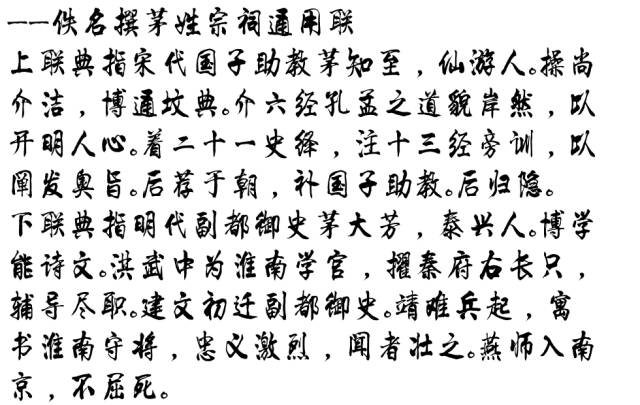 ——佚名撰茅姓宗祠通用联
上联典指宋代国子助教茅知至，仙游人。操尚
介洁，博通坟典。介六经孔孟之道貌岸然，以
开明人心。着二十一史绎，注十三经旁训，以
阐发奥旨。后荐于朝，补国子助教。后归隐。
下联典指明代副都御史茅大芳，泰兴人。博学
能诗文。洪武中为淮南学官，擢秦府右长只，
辅导尽职。建文初迁副都御史。靖难兵起，寓
书淮南守将，忠义激烈，闻者壮之。燕师入南
京，不屈死。